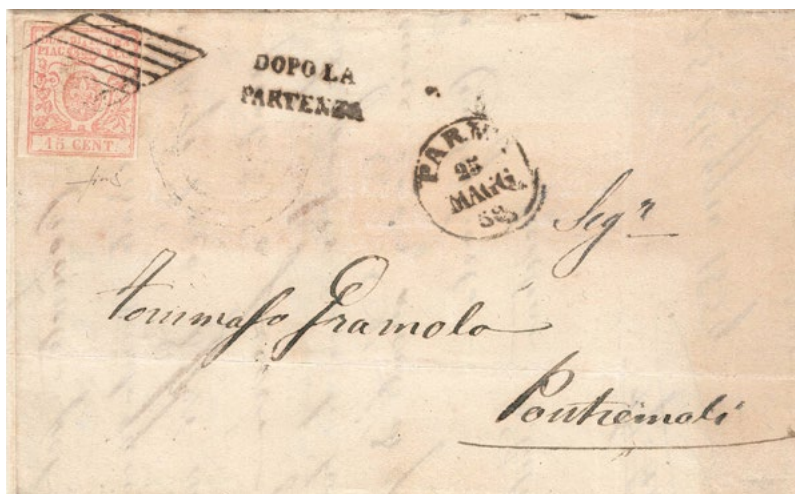 PIAC
15 CENT.
DOPO LA
PARTENZA
PARMA
25
MAGG.
58
Seg.r
Tommaso Gramola
Pontremoli